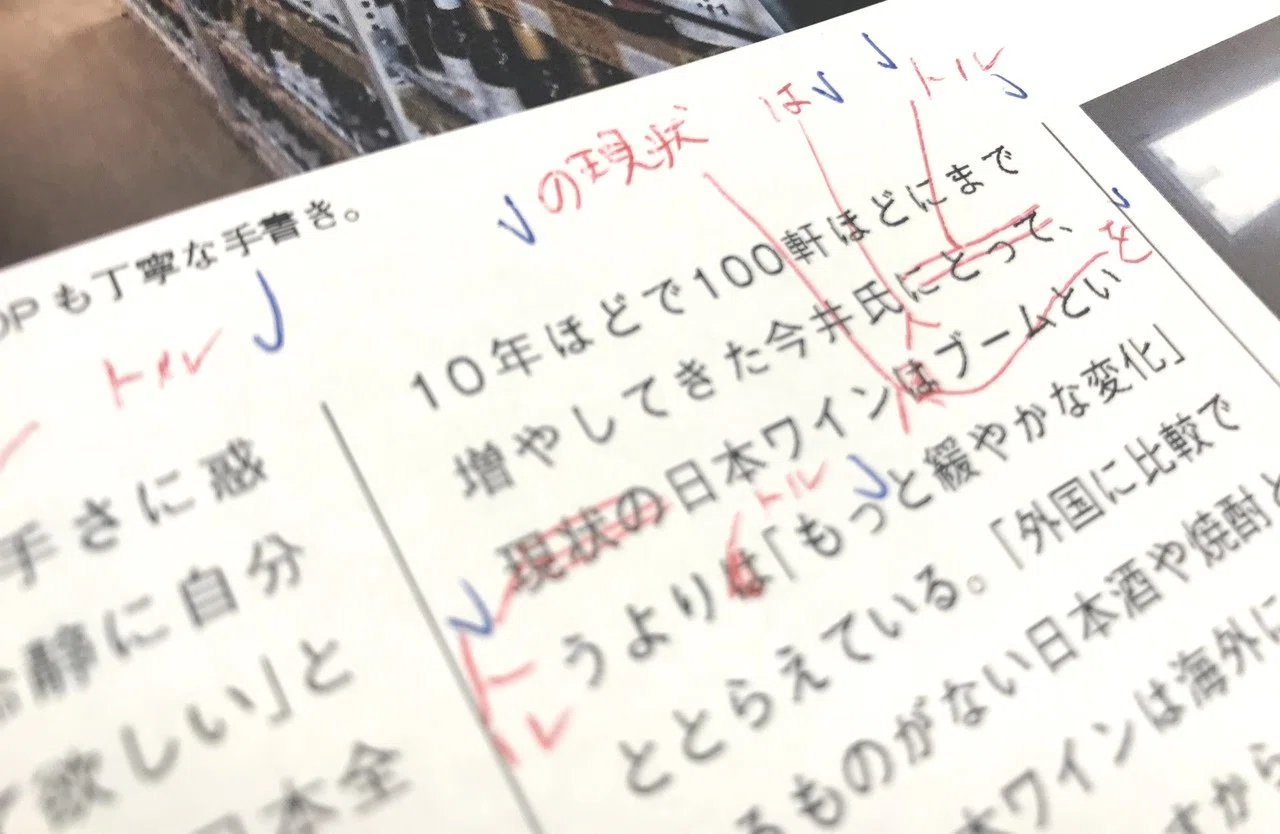 OPも丁寧な手書き。
トル
手さに惑
冷静に自分
て欲しい」と
日本全
の現状
は
トル
10年ほどで100軒ほどにまで
増やしてきた今井氏にとって、
を
現状の日本ワインはブームとい
トル
うよりは「もっと緩やかな変化」
トル
ととらえている。「外国に比較で
るものがない日本酒や焼酎と
本ワインは海外に
すから